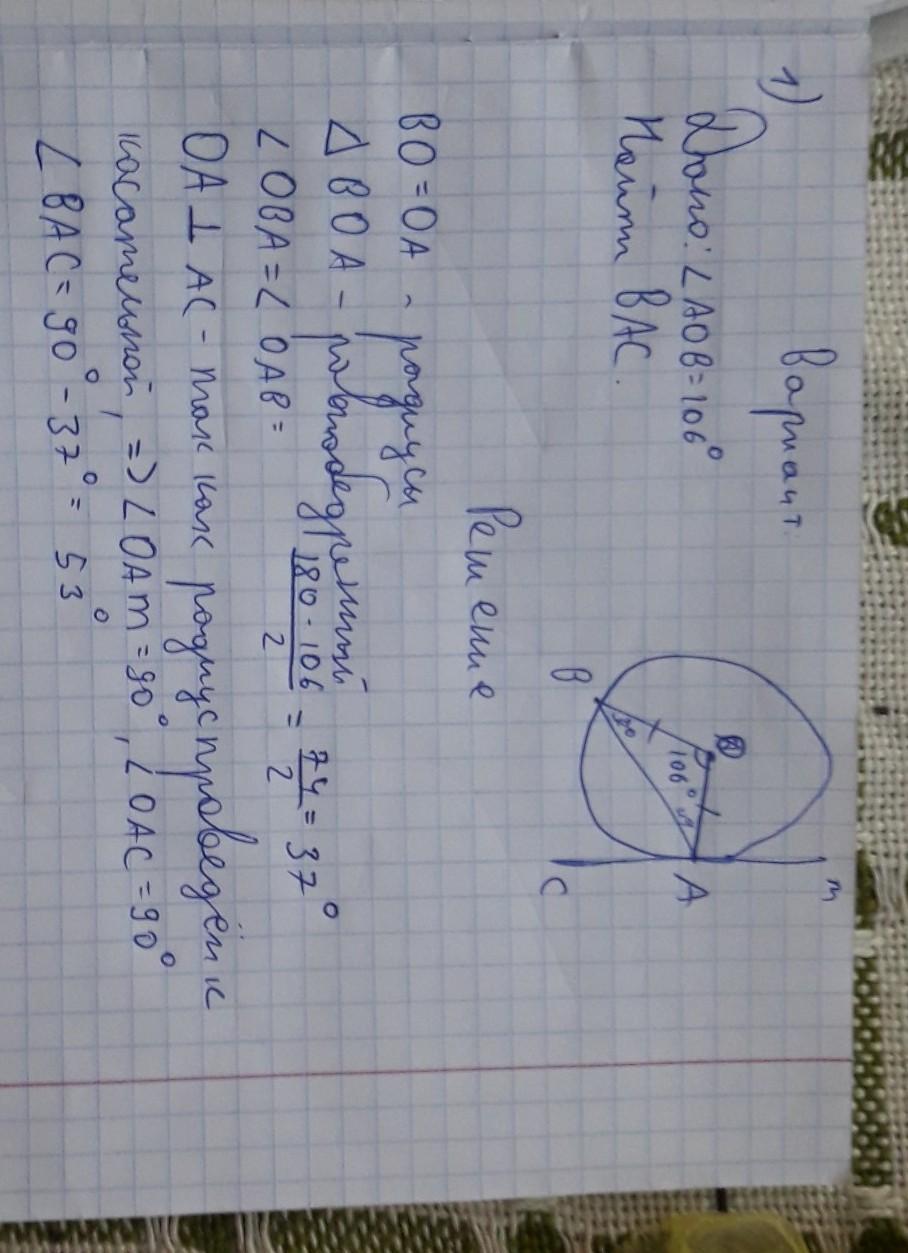 Вариант.
1)
Дано: ∠AOB=106°
Найти BAC.
B
106°
A
C
m
Решение
BO=OA - радиусы
△ BOA - равнобедренный
∠OBA=∠OAB= 180-106/2 = 74/2 = 37°
OA⊥AC - так как радиус проведён к
касательной, => ∠OAm=90°, ∠OAC=90°
∠BAC=90°-37°=53°